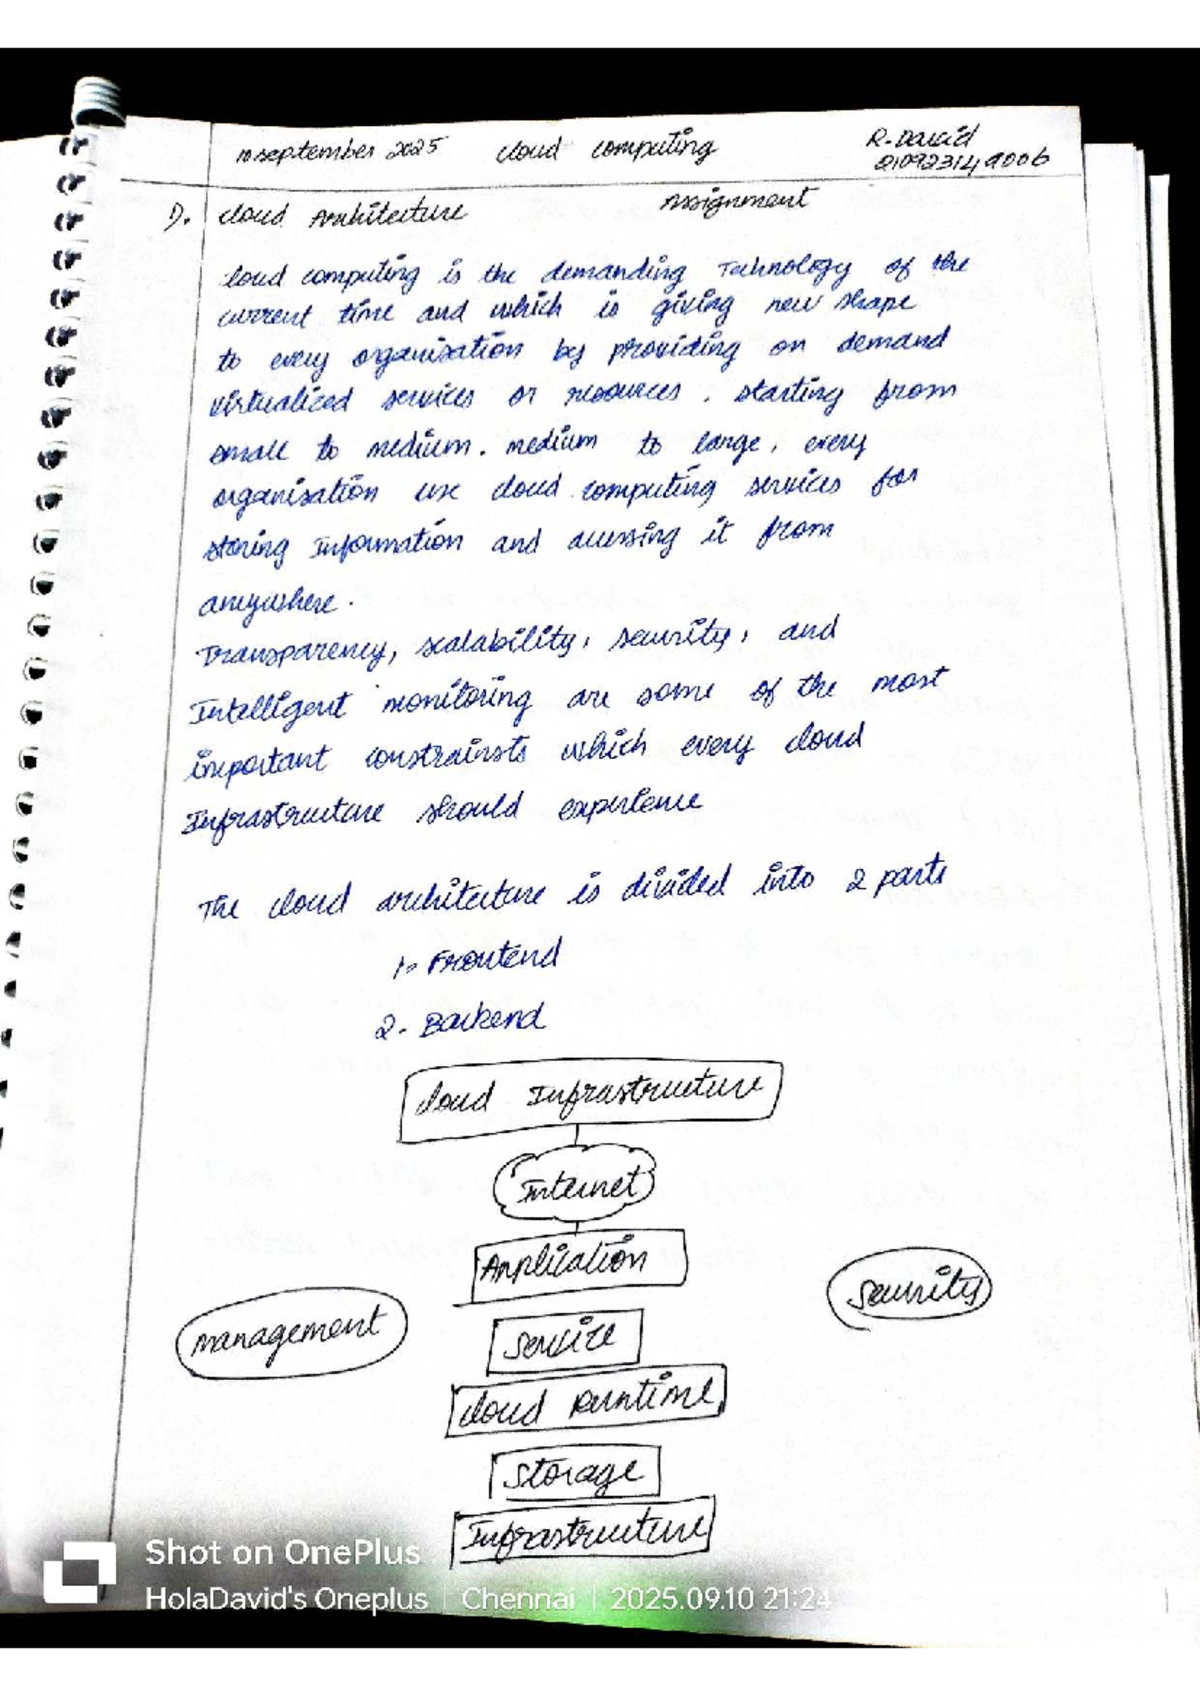 10 september 2025 cloud computing R. David
210923149006
Assignment
1). Cloud Architecture
Cloud computing is the demanding Technology of the
current time and which is giving new shape
to every organisation by providing on demand
virtualiced services or resources. starting from
small to medium. medium to large, every
organisation use cloud computing services for
storing Information and accessing it from
anywhere.
Transparency, scalability, security, and
Intelligent monitoring are some of the most
important constrainsts which every cloud
Infrastructure should experience
The cloud architecture is divided into 2 parts
1. Frontend
2. Backend
Cloud Infrastructure
Internet
Application
Security
management
Service
Cloud Runtime
Storage
Infrastructure
Shot on OnePlus
HolaDavid's Oneplus | Chennai | 2025.09.10 21:24